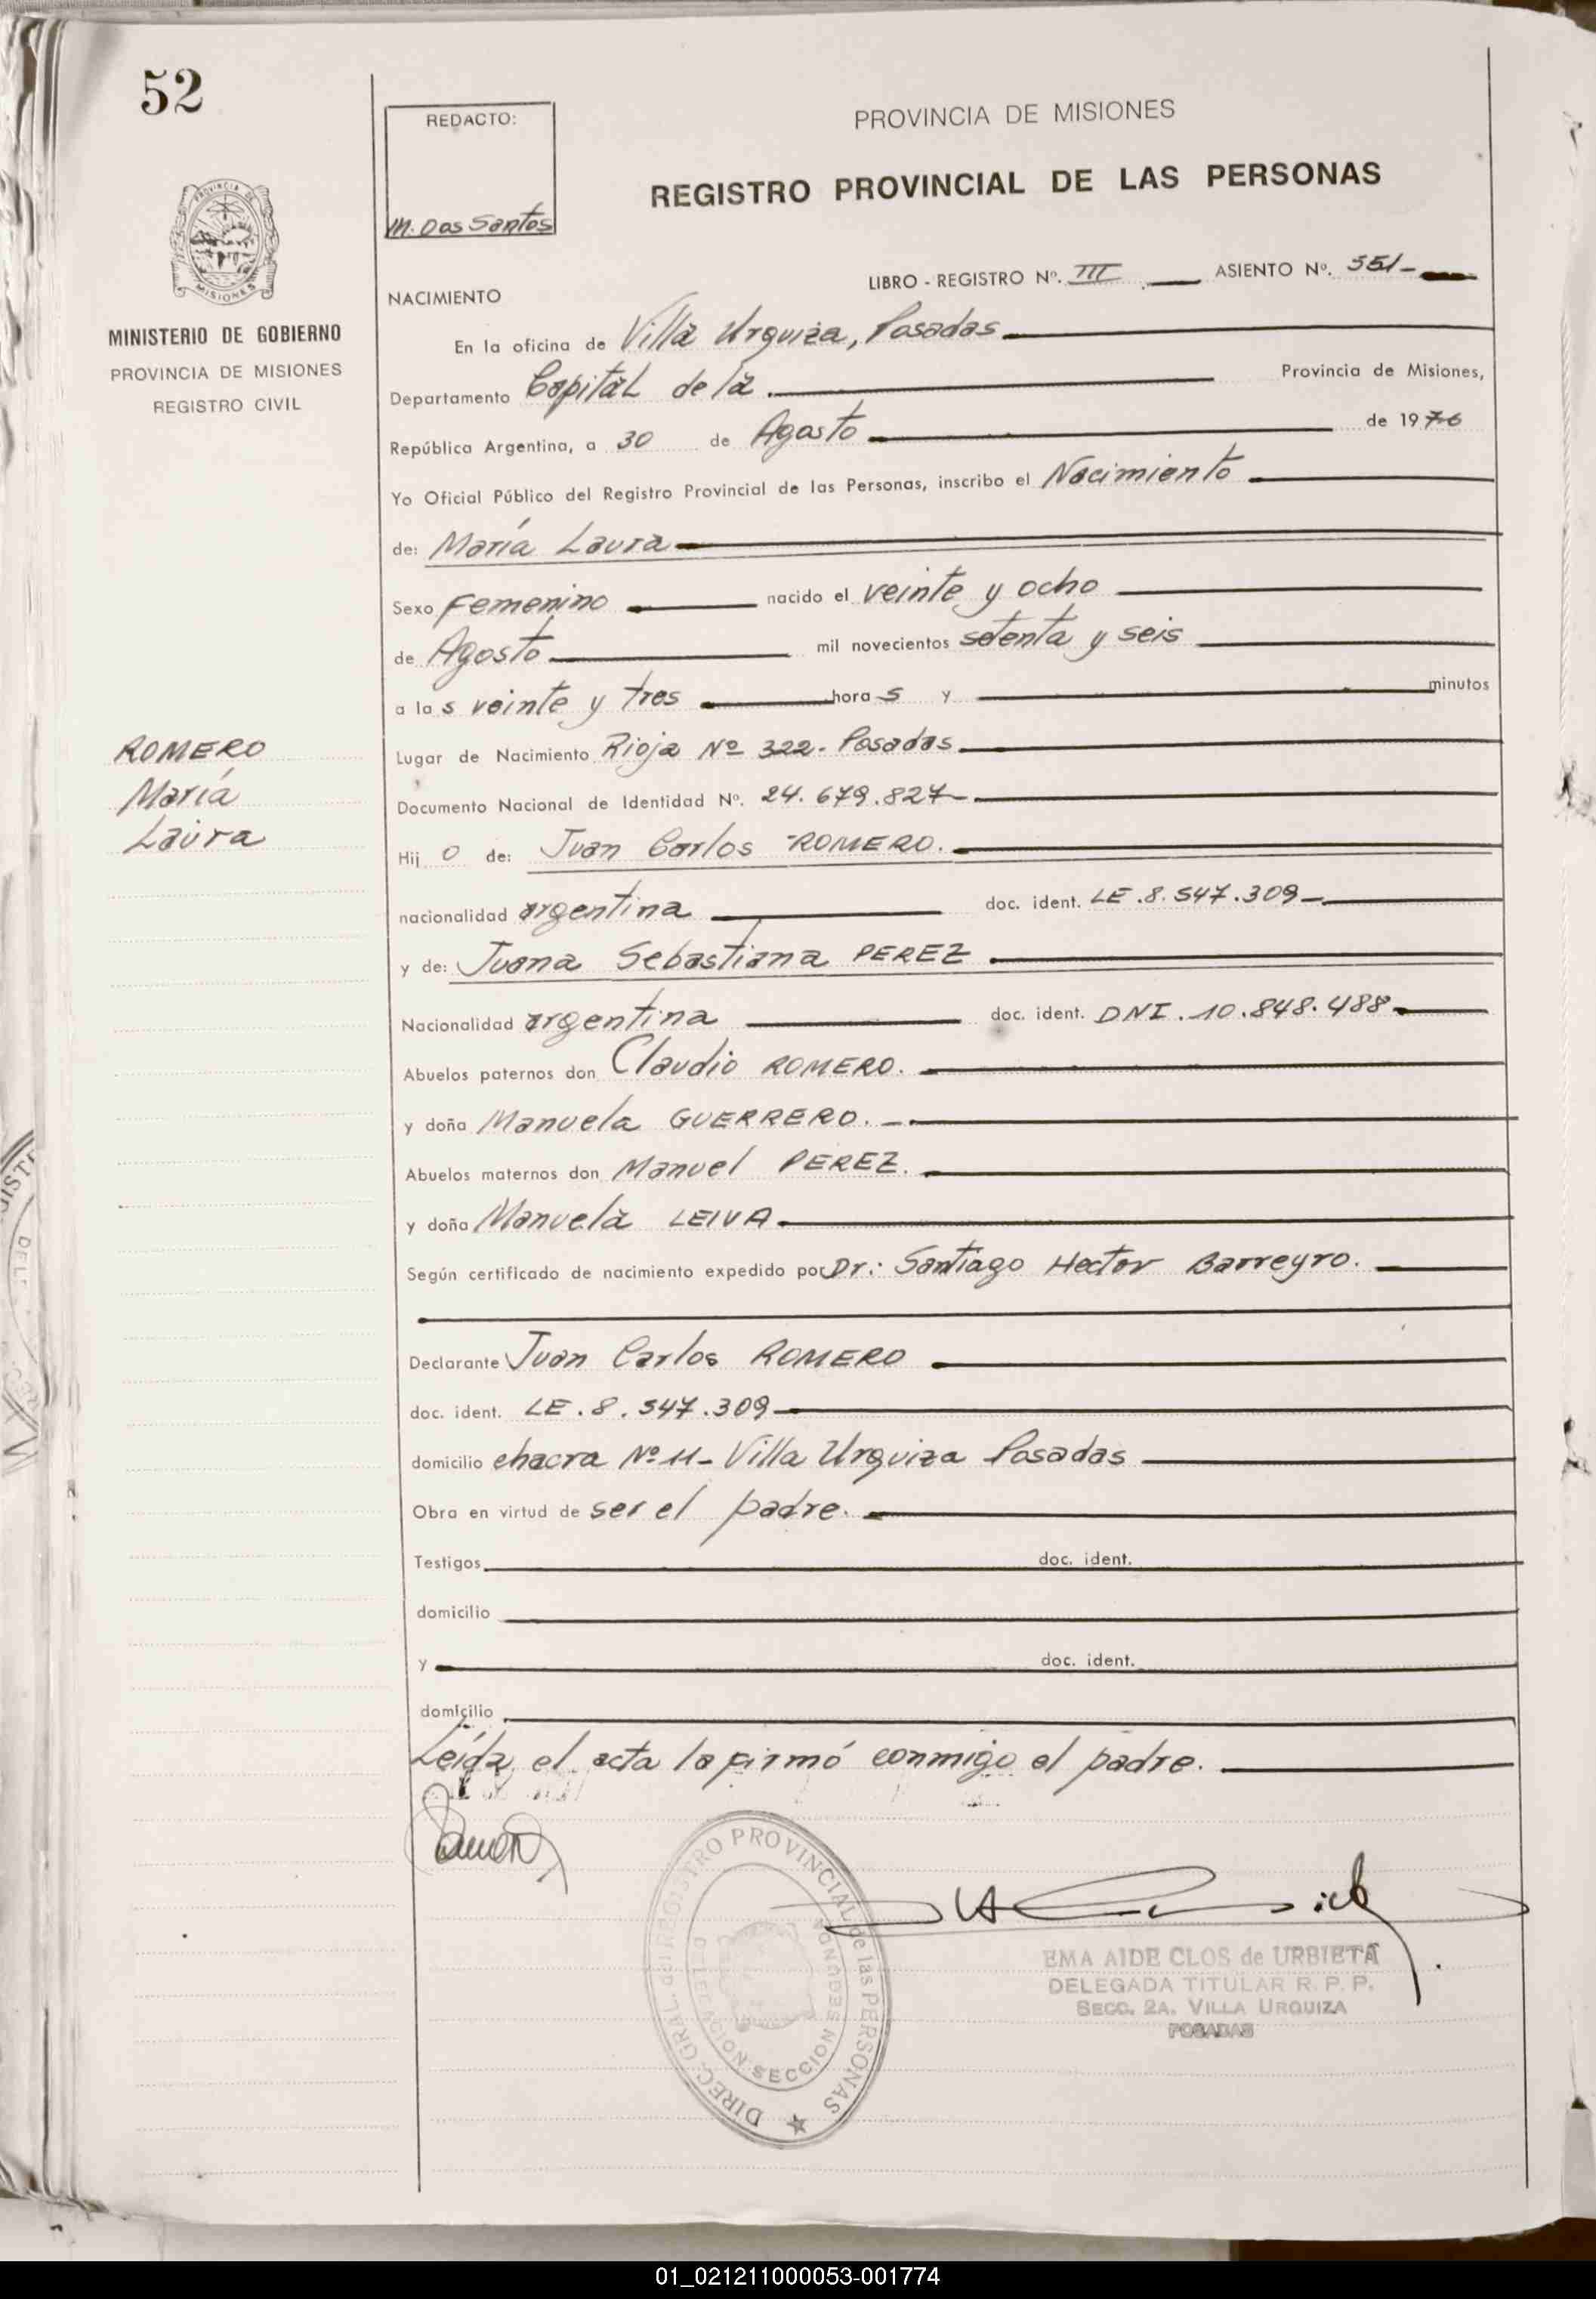 52
REDACTO:
M. Dos Santos
PROVINCIA DE MISIONES
REGISTRO PROVINCIAL DE LAS PERSONAS
PROVINCIA DE
MISIONES
MINISTERIO DE GOBIERNO
PROVINCIA DE MISIONES
REGISTRO CIVIL
LIBRO - REGISTRO Nº. III ASIENTO Nº. 551-
NACIMIENTO
En la oficina de Villa Urquiza, Posadas
Departamento Capital de la Provincia de Misiones,
República Argentina, a 30 de Agosto de 1976
Yo Oficial Público del Registro Provincial de las Personas, inscribo el Nacimiento
de: María Laura
Sexo Femenino nacido el veinte y ocho
de Agosto mil novecientos setenta y seis
a las veinte y tres horas y minutos
ROMERO
María
Laura
Lugar de Nacimiento Rioja Nº 322- Posadas
Documento Nacional de Identidad Nº. 24.679.827-
Hij o de: Juan Carlos ROMERO.
nacionalidad argentina doc. ident. LE.8.547.309-
y de: Juana Sebastiana PEREZ
Nacionalidad argentina doc. ident. DNI.10.848.488-
Abuelos paternos don Claudio ROMERO.
y doña Manuela GUERRERO.-
Abuelos maternos don Manuel PEREZ.
y doña Manuela LEIVA
Según certificado de nacimiento expedido por Dr.: Santiago Hector Barreyro.
Declarante Juan Carlos ROMERO
doc. ident. LE.8.547.309
domicilio chacra Nº 11- Villa Urquiza Posadas
Obra en virtud de ser el padre.
Testigos doc. ident.
domicilio
y doc. ident.
domicilio
Leída el acta la firmó conmigo el padre.
DIREC. GRAL. del REGISTRO PROVINCIAL de las PERSONAS
SECCION SEGUNDA
EMA AIDE CLOS de URBIETA
DELEGADA TITULAR R. P. P.
SECC. 2A. VILLA URQUIZA
POSADAS
01_021211000053-001774